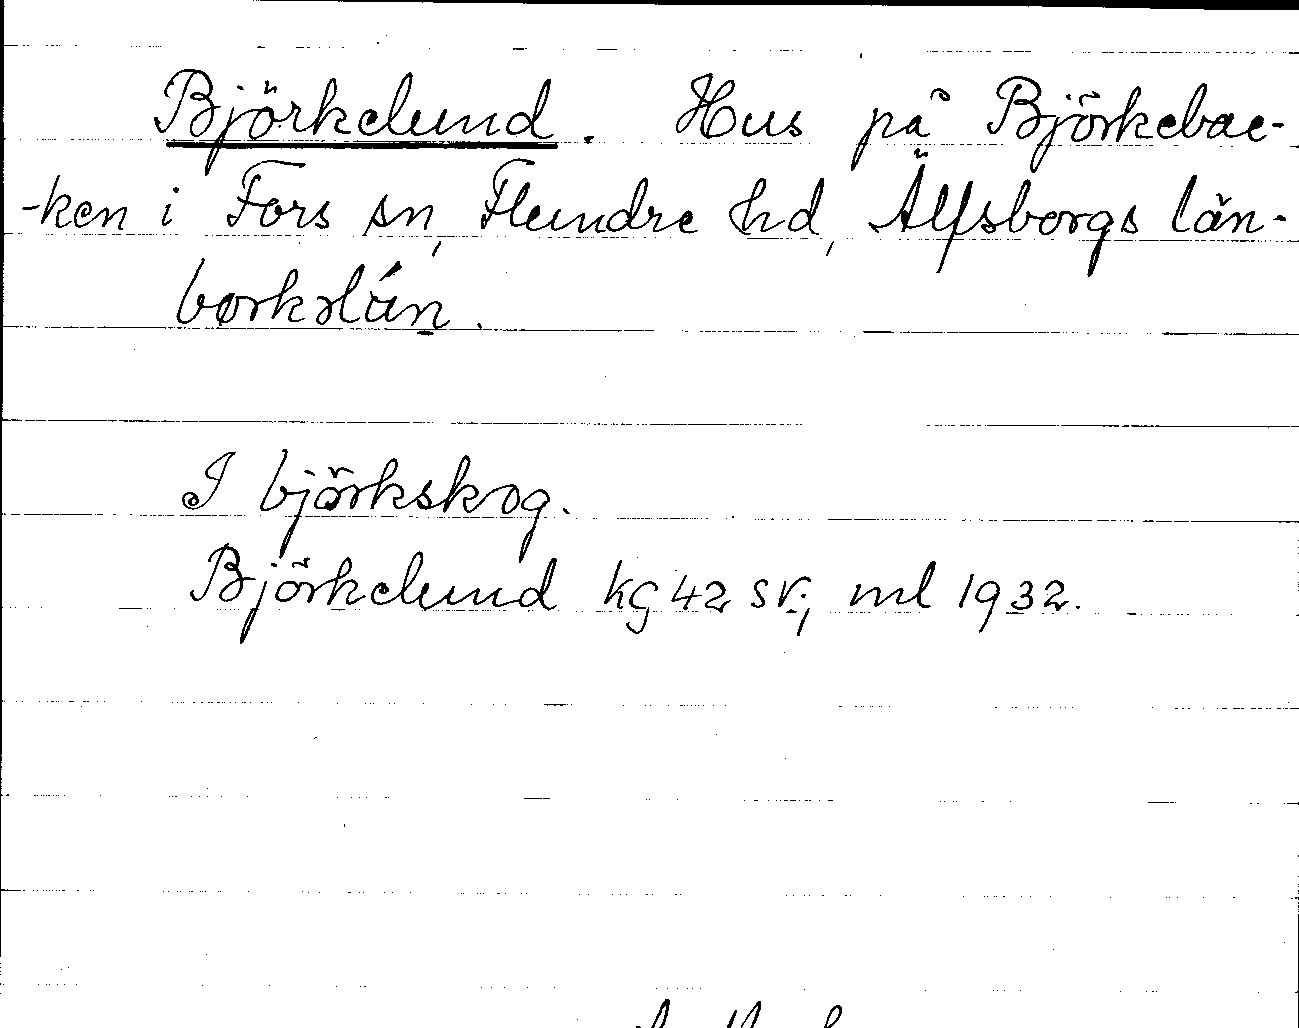 Björkelund. Hus på Björkebac-
-ken i Fors sn, Flundre hd, Älfsborgs län.
I björkskog.
Björkelund kg 42 sv; ml 1932.